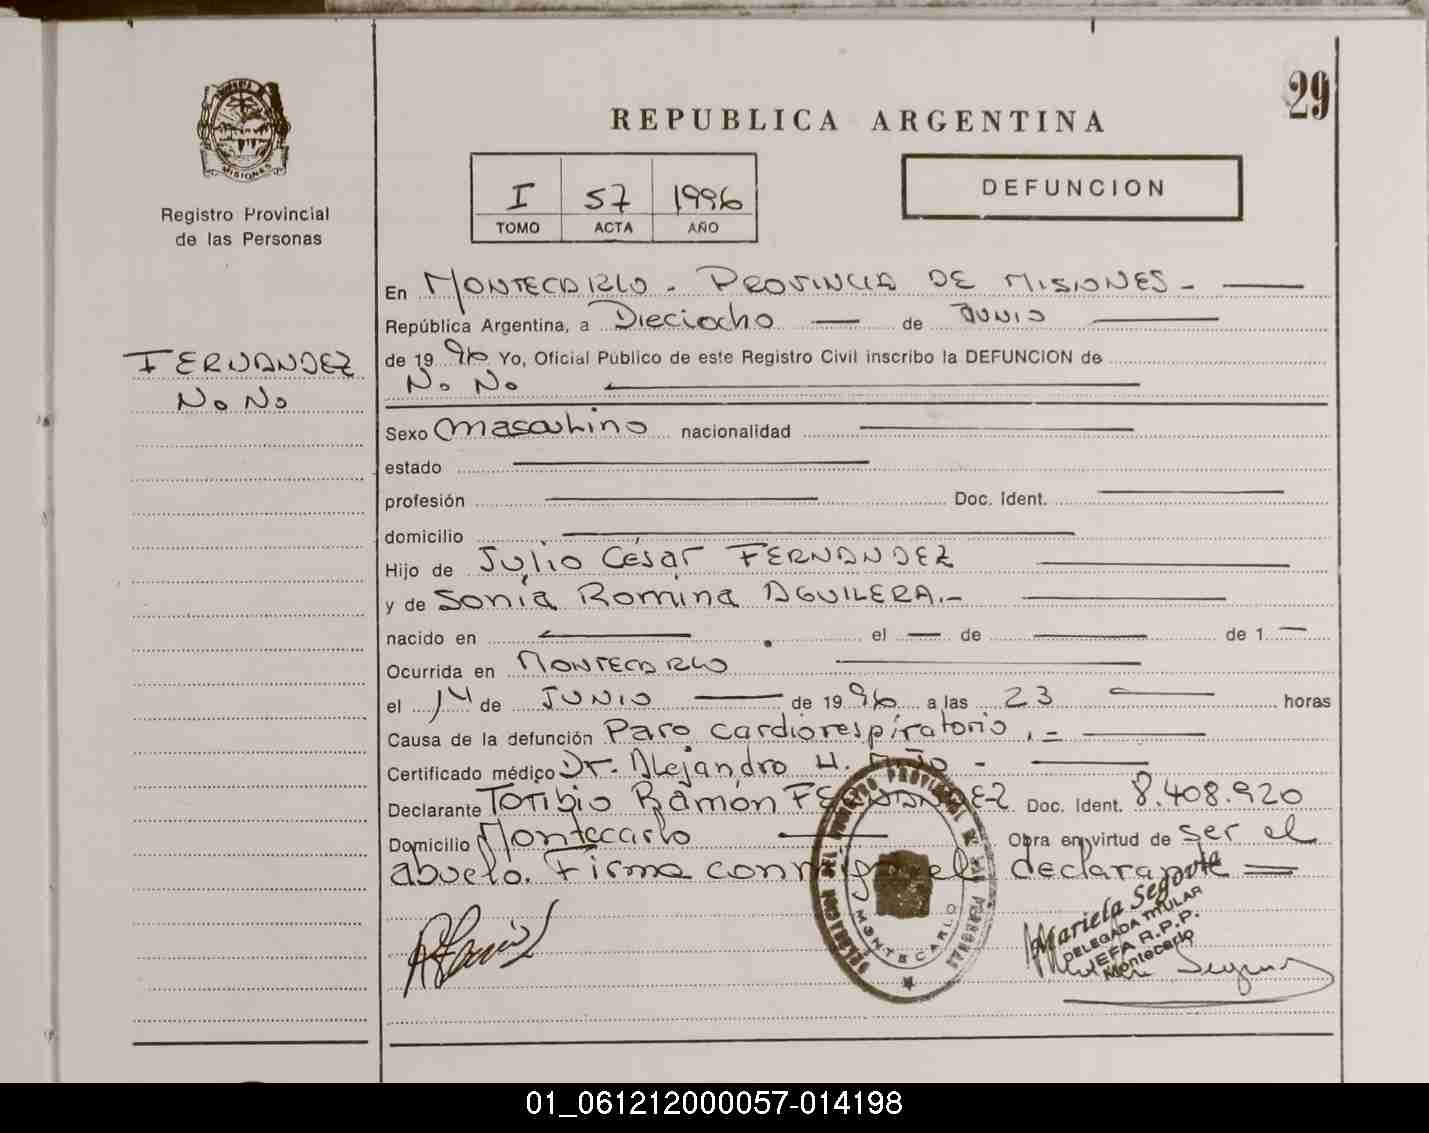 29
REPUBLICA ARGENTINA
MISIONES
Registro Provincial
de las Personas
I 57 1996
TOMO ACTA AÑO
DEFUNCION
FERNANDEZ
No No
En MONTECARLO - PROVINCIA DE MISIONES -
República Argentina, a Dieciocho de JUNIO
de 19 96 Yo, Oficial Público de este Registro Civil inscribo la DEFUNCION de
No No
Sexo Masculino nacionalidad
estado
profesión Doc. Ident.
domicilio
Hijo de Julio César FERNANDEZ
y de Sonia Romina AGUILERA.-
nacido en el de de 1
Ocurrida en MONTECARLO
el 14 de JUNIO de 19 96 a las 23 horas
Causa de la defunción Paro cardiorespiratorio.=
Certificado médico Dr. Alejandro H.
Declarante Toribio Ramón FERNANDEZ Doc. Ident. 8.408.920
Domicilio Montecarlo Obra en virtud de ser el
abuelo. Firma conmigo el declarante =
DELEGACION DEL REGISTRO PROVINCIAL DE LAS PERSONAS
MONTECARLO
Mariela Segovia
DELEGADA TITULAR
JEFA R.P.P.
Montecarlo
01_061212000057-014198